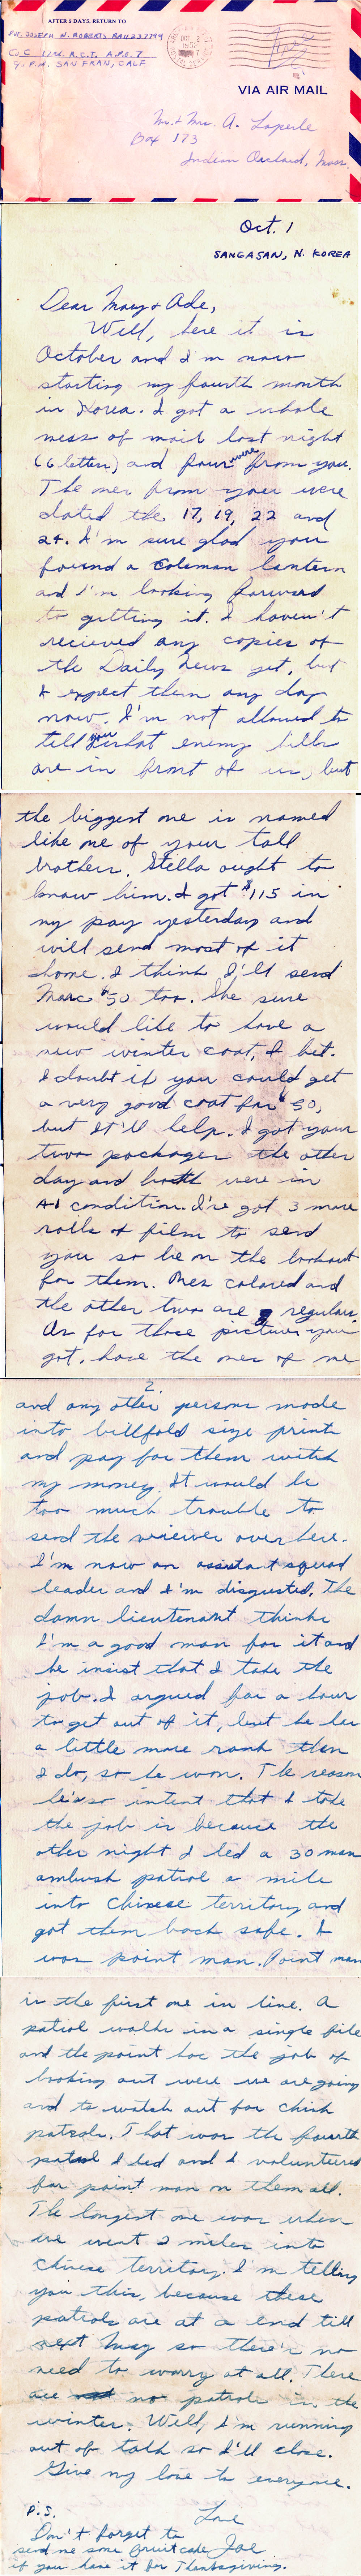 AFTER 5 DAYS, RETURN TO
PVT. JOSEPH N. ROBERTS RA11237799
Co C 17th. R.C.T. A.P.O. 7
% P.M. SAN FRAN, CALF
OCT 2
1952
VIA AIR MAIL
Mr. & Mrs. A. Laperle
Box 173
Indian Orchard, Mass.
Oct. 1
SANGASAN, N. KOREA
Dear Mary & Ade,
Well, here it is
October and I'm now
starting my fourth month
in Korea. I got a whole
mess of mail last night
(6 letters) and four were from you.
The ones from you were
dated the 17, 19, 22 and
24. I'm sure glad you
found a Coleman lantern
and I'm looking forward
to getting it. I haven't
recieved any copies of
the Daily News yet, but
I expect them any day
now. I'm not allowed to
tell you what enemy hills
are in front of us, but
the biggest one is named
like one of your tall
brothers. Stella ought to
know him. I got $115 in
my pay yesterday and
will send most of it
home. I think I'll send
Marc $50 too. She sure
would like to have a
new winter coat, I bet.
I doubt if you could get
a very good coat for $50,
but it'll help. I got your
two packages the other
day and both were in
A-1 condition. I've got 3 more
rolls of film to send
you so be on the lookout
for them. Ones colored and
the other two are regular.
As for those pictures you
got, have the ones of me
2.
and any other persons made
into billfold size prints
and pay for them with
my money. It would be
too much trouble to
send the viewer over here.
I'm now an assistant squad
leader and I'm disgusted. The
damn lieutenant thinks
I'm a good man for it and
he insist that I take the
job. I argued for a hour
to get out of it, but he has
a little more rank than
I do, so he won. The reason
he's so intent that I take
the job is because the
other night I led a 30 man
ambush patrol a mile
into Chinese territory and
got them back safe. I
was point man. Point man
is the first one in line. A
patrol walks in a single file
and the point has the job of
looking out were we are going
and to watch out for Chink
patrols. That was the fourth
patrol I led and I volunteered
for point man on them all.
The longest one was when
we went 2 miles into
Chinese territory. I'm telling
you this, because these
patrols are at a end till
next May so there's no
need to worry at all. There
are no patrols in the
winter. Well, I'm running
out of talk so I'll close.
Give my love to everyone.
Love
Joe
P.S.
Don't forget to
send me some fruitcake
if you have it for Thanksgiving.